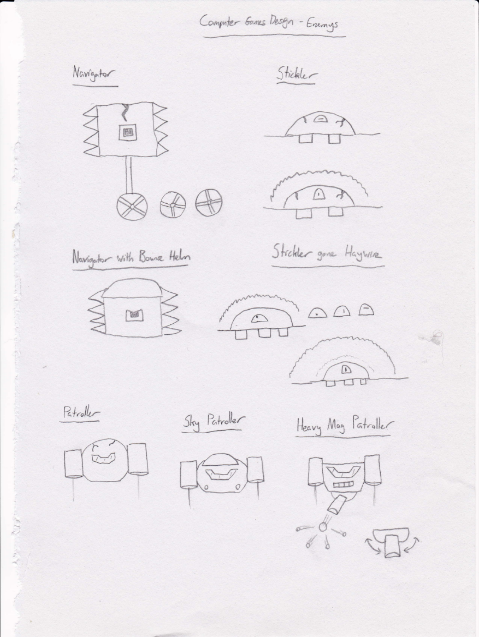 Computer Games Design - Enemys
Navigator
Stickler
Navigator with Bounce Helm
Stickler gone Haywire
Patroller
Sky Patroller
Heavy Mag Patroller